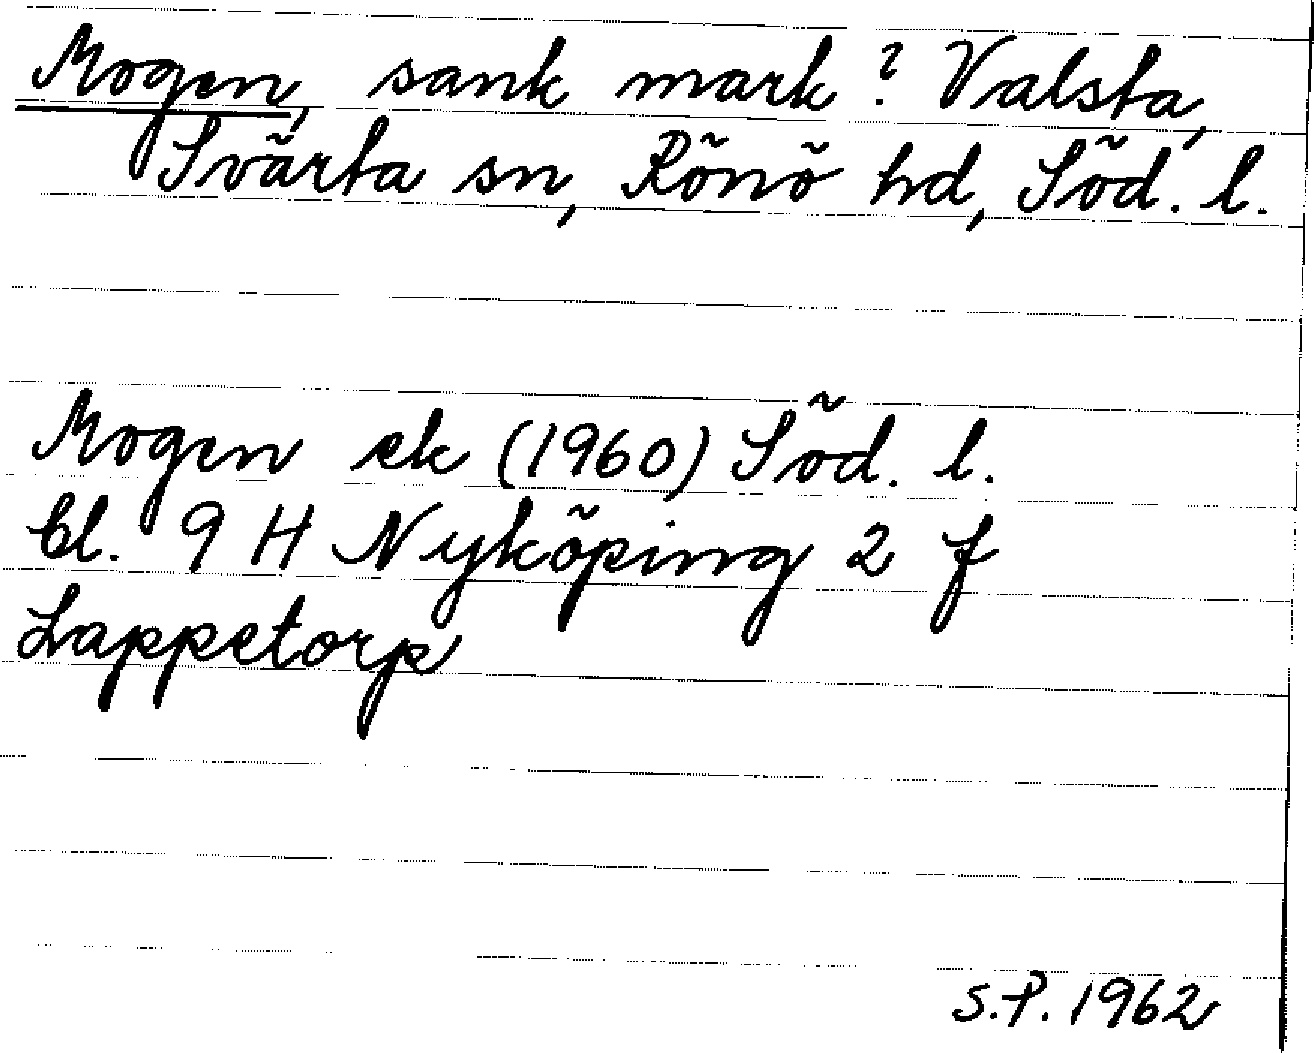 Mogen, sank mark? Valsta,
Svärta sn, Rönö hd, Söd. l.
Mogen ek (1960) Söd. l.
bl. 9 H Nyköping 2 f
Lappetorp
S.P. 1962